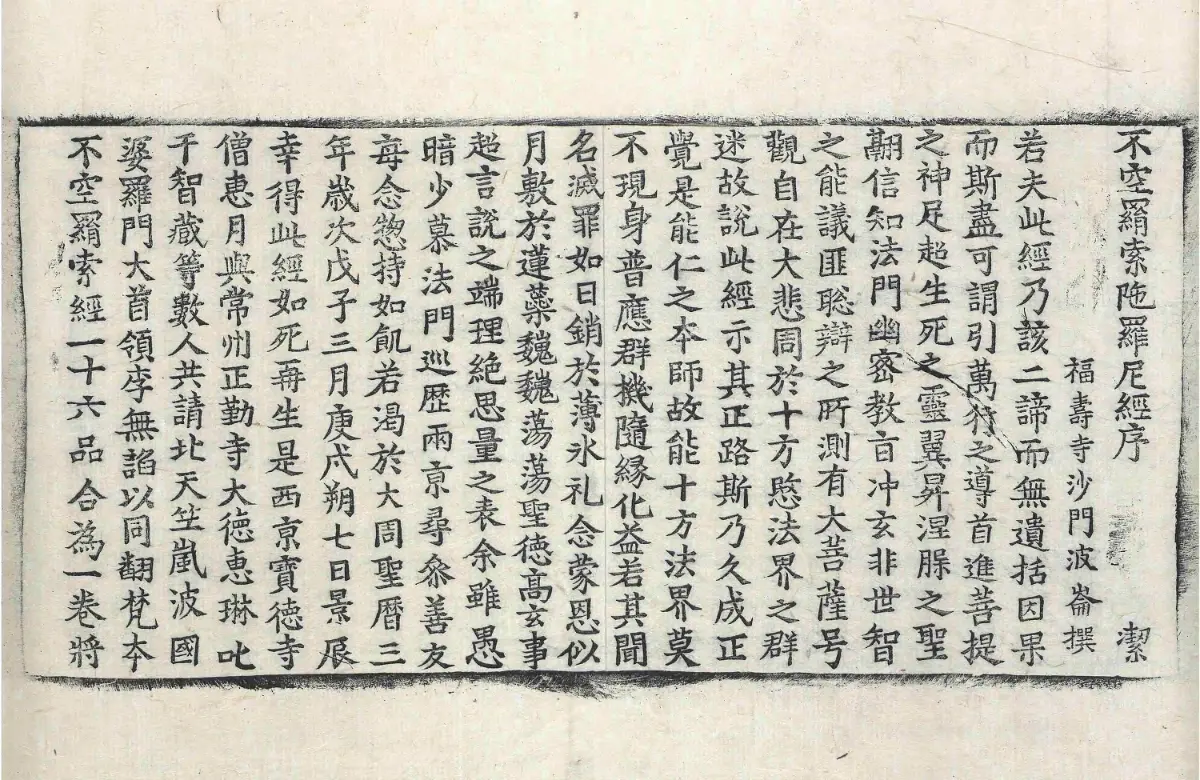 不空羂索陁羅尼經序　潔
福壽寺沙門波崙撰
若夫此經乃該二諦而無遺括因果
而斯盡可謂引萬行之導首進菩提
之神足超生死之靈翼昇涅脲之聖
翻信知法門幽密教旨冲玄非世智
之能議匪聡辯之所測有大菩薩号
觀自在大悲周於十方愍法界之群
迷故說此經示其正路斯乃久成正
覺是能仁之本師故能十方法界莫
不現身普應群機隨緣化益若其聞
名滅罪如日銷於薄氷礼念蒙恩似
月敷於蓮蘂巍巍蕩蕩聖德高玄事
超言說之端理絕思量之表余雖愚
暗少慕法門巡歷兩京尋叅善友
每念惣持如飢若渴於大周聖曆三
年歲次戊子三月庚戌朔七日景辰
幸得此經如死再生是西京寶德寺
僧惠月與常州正勤寺大德惠琳叱
千智藏等數人共請北天竺嵐波國
婆羅門大首領李無諂以同翻梵本
不空羂索經一十六品合為一卷將